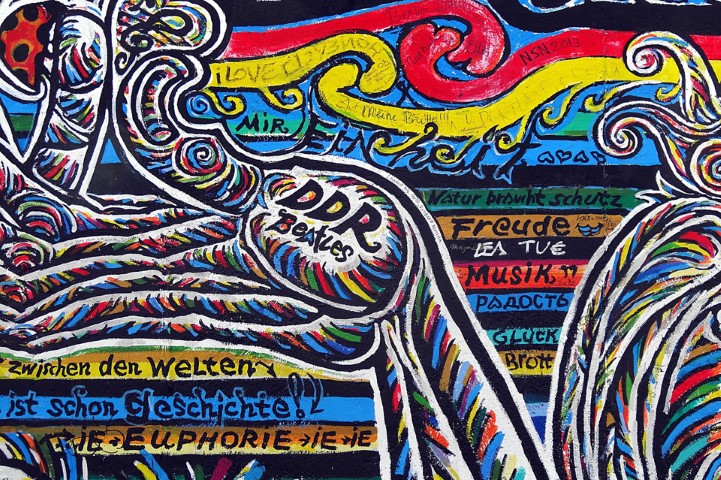 I LOVE
NSN 2013
MiR
Einheit
DDR
BEATLES
Natur braucht schutz
FREUDE
LEA TUE
MUSiK
РАДОСТЬ
GLÜCK
BROTT
zwischen den WELTEN
ist schon Geschichte!
iE EUPHORIE iE iE